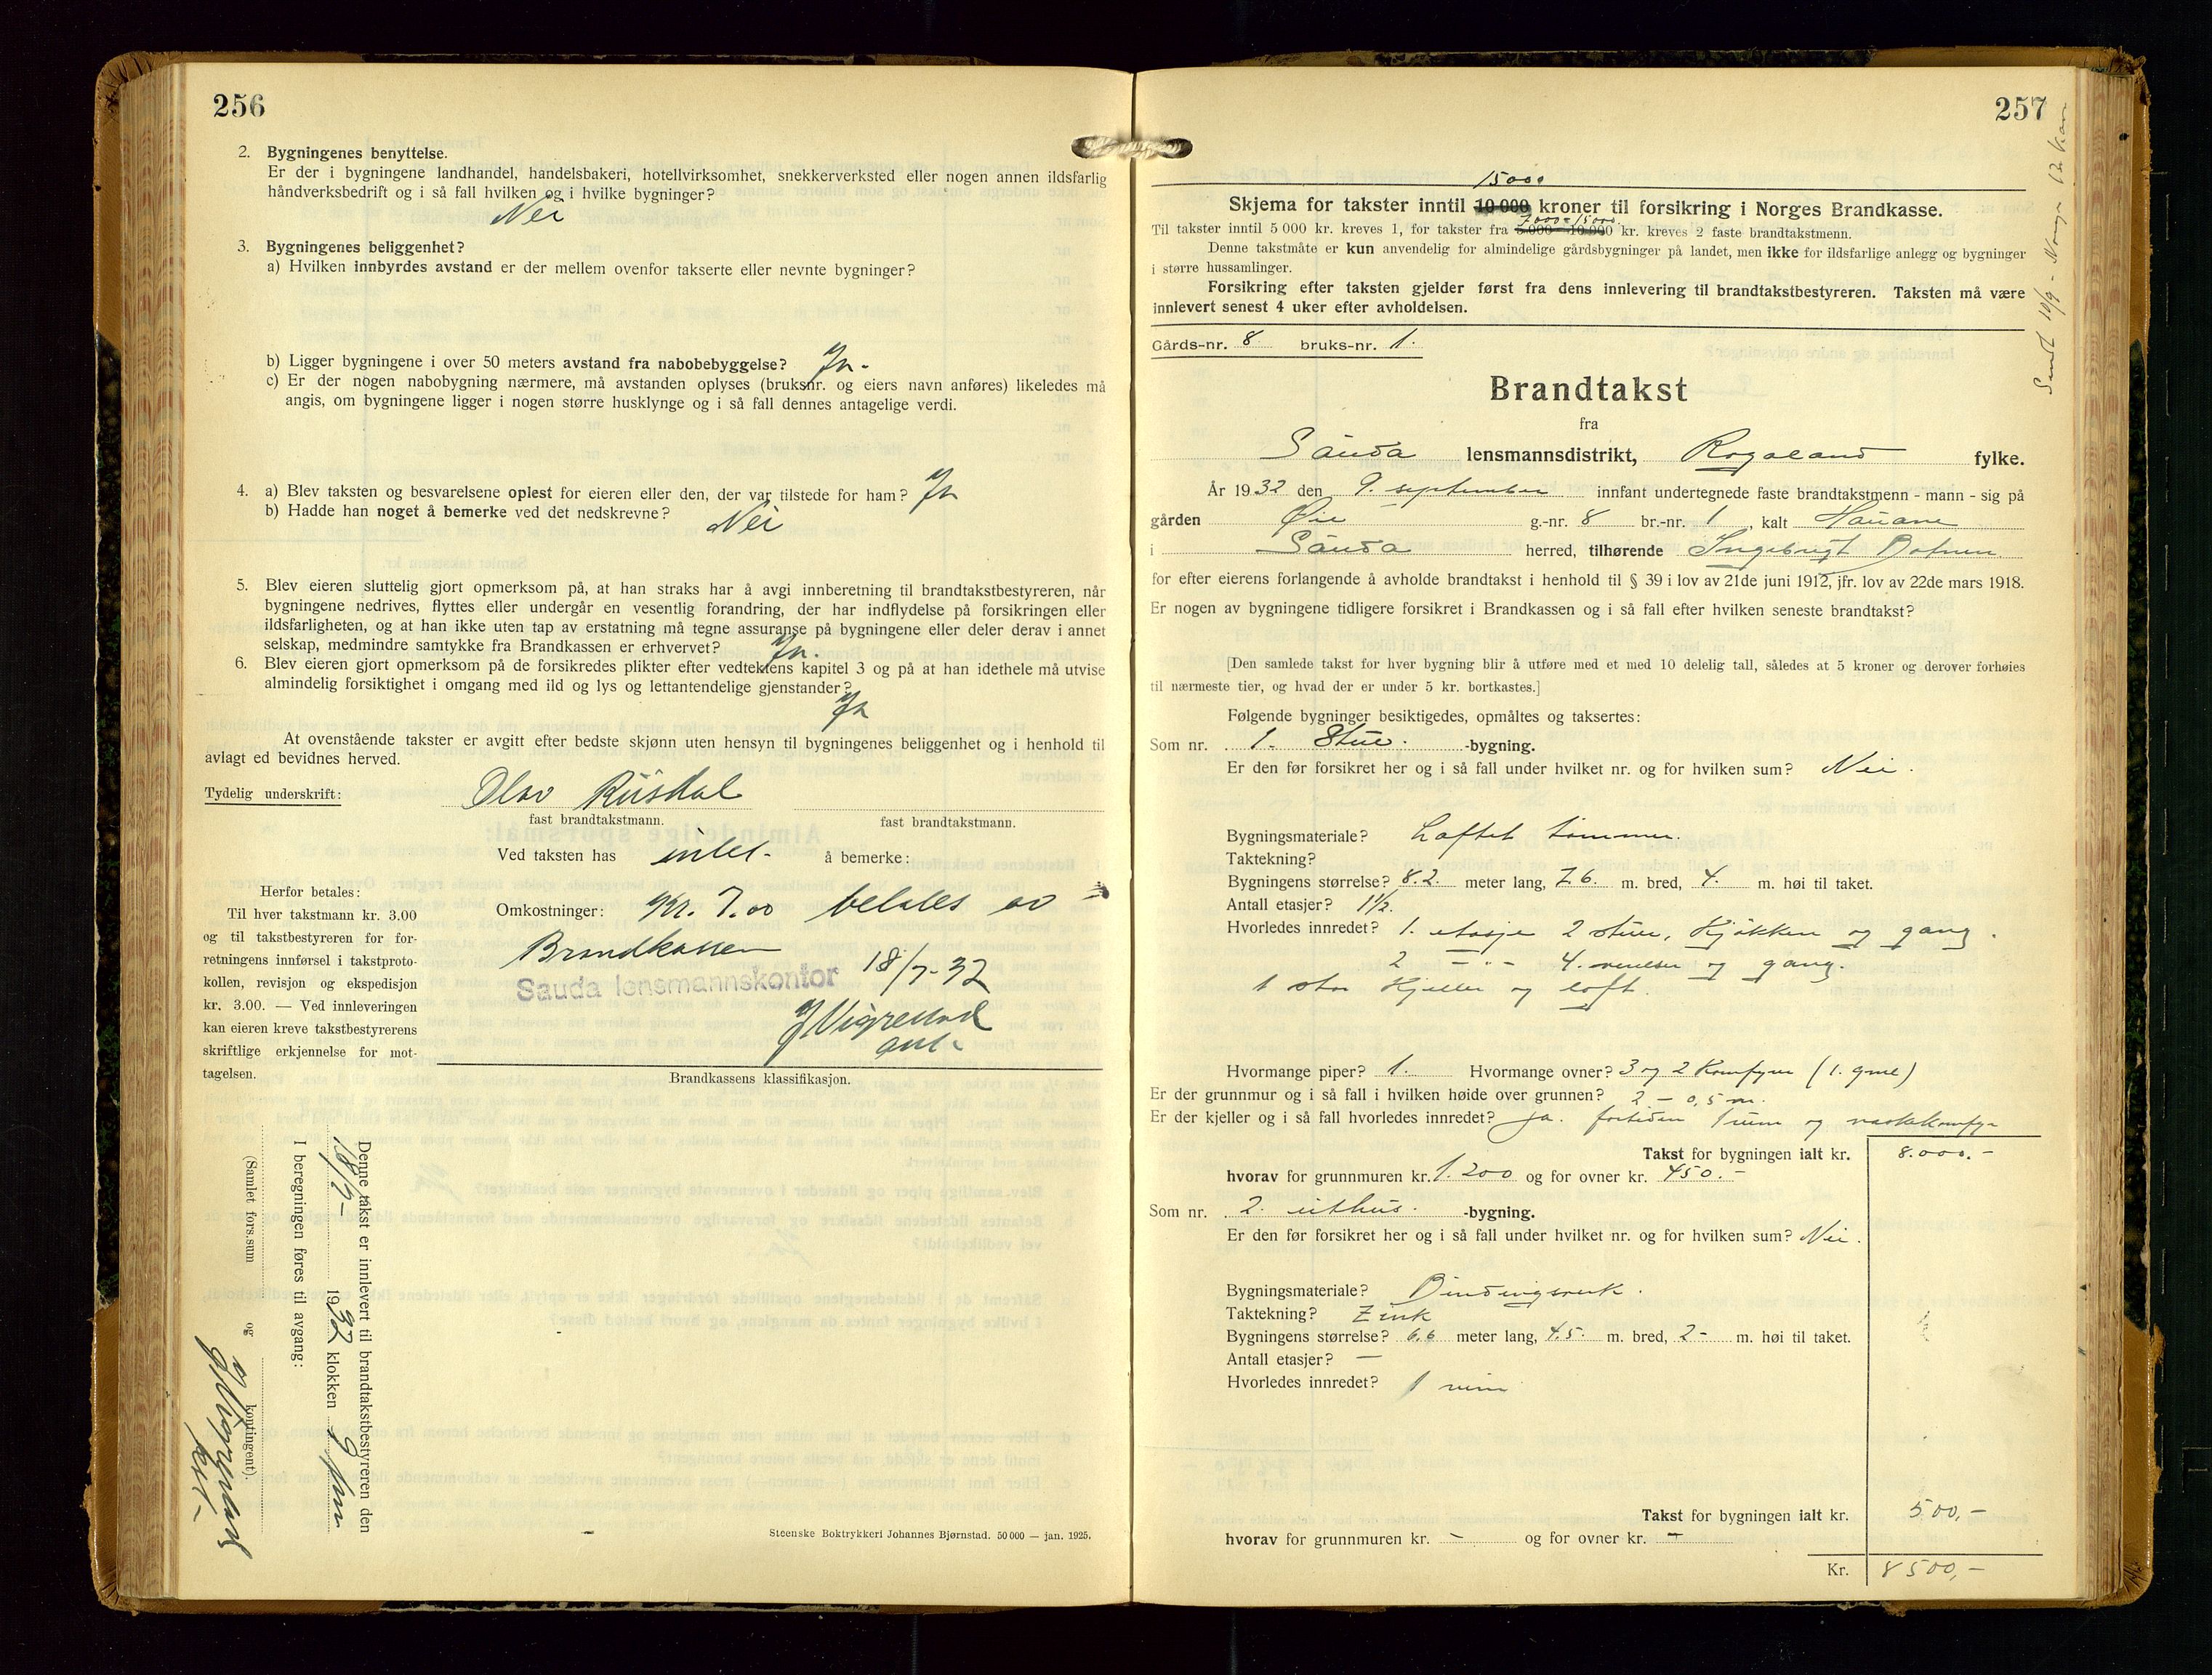 256
2. Bygningenes benyttelse.
Er der i bygningene landhandel, handelsbakeri, hotellvirksomhet, snekkerverksted eller nogen annen ildsfarlig
håndverksbedrift og i så fall hvilken og i hvilke bygninger?
Nei
3. Bygningenes beliggenhet?
a) Hvilken innbyrdes avstand er der mellem ovenfor takserte eller nevnte bygninger?
b) Ligger bygningene i over 50 meters avstand fra nabobebyggelse? Ja.
c) Er der nogen nabobygning nærmere, må avstanden oplyses (bruksnr. og eiers navn anføres) likeledes må
angis, om bygningene ligger i nogen større husklynge og i så fall dennes antagelige verdi.
4. a) Blev taksten og besvarelsene oplest for eieren eller den, der var tilstede for ham? Ja
b) Hadde han noget å bemerke ved det nedskrevne? Nei
5. Blev eieren sluttelig gjort opmerksom på, at han straks har å avgi innberetning til brandtakstbestyreren, når
bygningene nedrives, flyttes eller undergår en vesentlig forandring, der har indflydelse på forsikringen eller
ildsfarligheten, og at han ikke uten tap av erstatning må tegne assuranse på bygningene eller deler derav i annet
selskap, medmindre samtykke fra Brandkassen er erhvervet? Ja.
6. Blev eieren gjort opmerksom på de forsikredes plikter efter vedtektens kapitel 3 og på at han idethele må utvise
almindelig forsiktighet i omgang med ild og lys og lettantendelige gjenstander?
Ja
At ovenstående takster er avgitt efter bedste skjønn uten hensyn til bygningenes beliggenhet og i henhold til
avlagt ed bevidnes herved.
Tydelig underskrift: Olav
fast brandtakstmann. fast brandtakstmann.
Ved taksten has intet å bemerke:
Herfor betales:
Til hver takstmann kr. 3.00
og til takstbestyreren for for-
retningens innførsel i takstproto-
kollen, revisjon og ekspedisjon
kr. 3.00. — Ved innleveringen
kan eieren kreve takstbestyrerens
skriftlige erkjennelse for mot-
tagelsen.
Omkostninger: Kr. 7.00 betales av
Brandkassen
Sauda lensmannskontor 18/7-32
J Vigrestad
Brandkassens klassifikasjon.
Denne takst er innlevert til brandtakstbestyreren den
18/7- 1932 klokken 9
I beregningen føres til avgang:
(Samlet fors.sum og kontingent).
J Vigrestad
Steenske Boktrykkeri Johannes Bjørnstad. 50 000 — jan. 1925.
257
15000
Skjema for takster inntil 10 000 kroner til forsikring i Norges Brandkasse.
7000 - 15000
Til takster inntil 5 000 kr. kreves 1, for takster fra 5.000—10.000 kr. kreves 2 faste brandtakstmenn.
Denne takstmåte er kun anvendelig for almindelige gårdsbygninger på landet, men ikke for ildsfarlige anlegg og bygninger
i større hussamlinger.
Forsikring efter taksten gjelder først fra dens innlevering til brandtakstbestyreren. Taksten må være
innlevert senest 4 uker efter avholdelsen.
Gårds-nr. 8 bruks-nr. 1.
Brandtakst
fra
Sauda lensmannsdistrikt, Rogaland fylke.
År 1932 den 9. september innfant undertegnede faste brandtakstmenn - mann - sig på
gården Øie g.-nr. 8 br.-nr. 1, kalt Hauane
i Sauda herred, tilhørende Ingebrigt
for efter eierens forlangende å avholde brandtakst i henhold til § 39 i lov av 21de juni 1912, jfr. lov av 22de mars 1918.
Er nogen av bygningene tidligere forsikret i Brandkassen og i så fall efter hvilken seneste brandtakst?
[Den samlede takst for hver bygning blir å utføre med et med 10 delelig tall, således at 5 kroner og derover forhøies
til nærmeste tier, og hvad der er under 5 kr. bortkastes.]
Følgende bygninger besiktigedes, opmåltes og taksertes:
Som nr. 1. Stue -bygning.
Er den før forsikret her og i så fall under hvilket nr. og for hvilken sum? Nei.
Bygningsmateriale? Laftet tømmer.
Taktekning?
Bygningens størrelse? 8.2. meter lang, 7.6. m. bred, 4. m. høi til taket.
Antall etasjer? 1½.
Hvorledes innredet? 1. etasje 2 stuer, Kjøkken og gang.
2 — " — 4. værelser og gang.
1 stor Kjeller og loft.
Hvormange piper? 1. Hvormange ovner? 3 og 2 Komfyrer (1. grue)
Er der grunnmur og i så fall i hvilken høide over grunnen? 2 - 0,5 m.
Er der kjeller og i så fall hvorledes innredet? Ja. 1 rum og vaskekomfyr
Takst for bygningen ialt kr. 8.000.-
hvorav for grunnmuren kr. 1.200 og for ovner kr. 450.-
Som nr. 2. uthus. -bygning.
Er den før forsikret her og i så fall under hvilket nr. og for hvilken sum? Nei.
Bygningsmateriale? Bindingsverk.
Taktekning? Zink
Bygningens størrelse? 6,6 meter lang, 4.5. m. bred, 2- m. høi til taket.
Antall etasjer? —
Hvorledes innredet? 1 rum
Takst for bygningen ialt kr. 500,-
hvorav for grunnmuren kr. — og for ovner kr. —
Kr. 8500,-